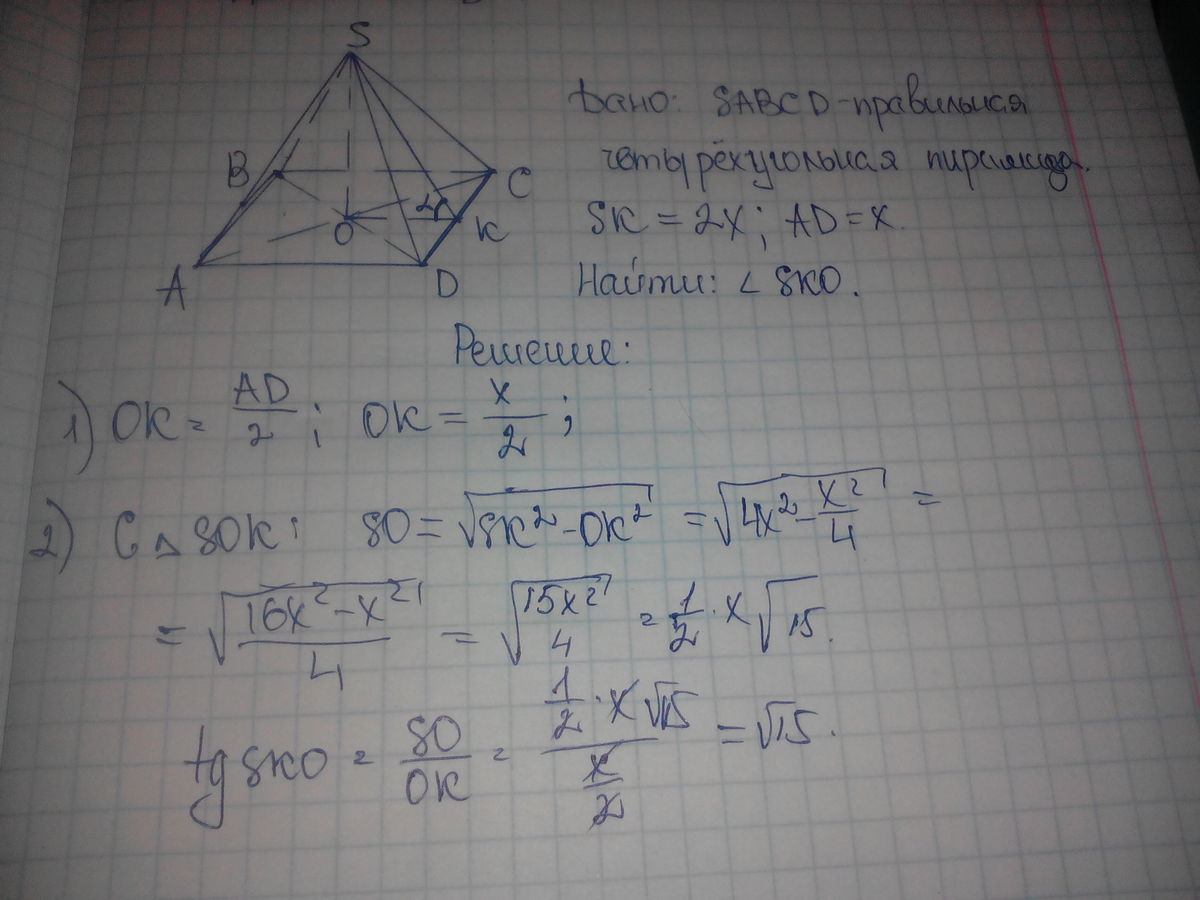 S
B
C
O
K
A
D
Дано: SABCD - правильная
четырёхугольная пирамида.
SK = 2x; AD = x.
Найти: ∠ SKO.
Решение:
1) OK = AD/2; OK = x/2;
2) С △ SOK: SO = √(SK² - OK²) = √(4x² - x²/4) =
= √((16x² - x²)/4) = √(15x²/4) = 1/2 · x √15.
tg SKO = SO/OK = (1/2 · x √15)/(x/2) = √15.